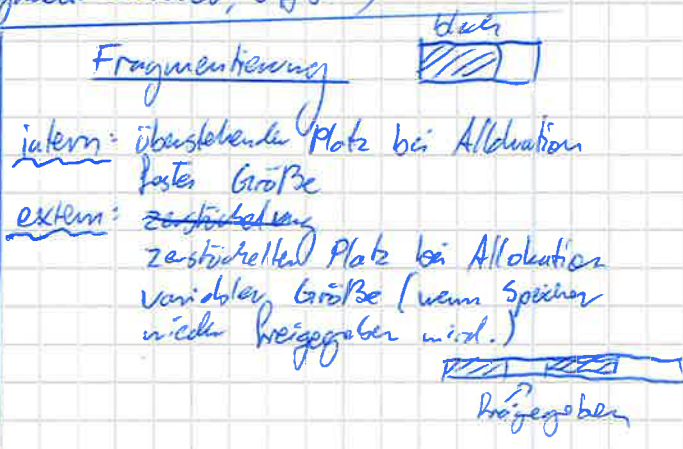 Block
Fragmentierung
intern: überstehender Platz bei Allokation
fester Größe
extern: zerstückelung
zerstückelter Platz bei Allokation
variabler Größe (wenn Speicher
wieder freigegeben wird.)
freigegeben